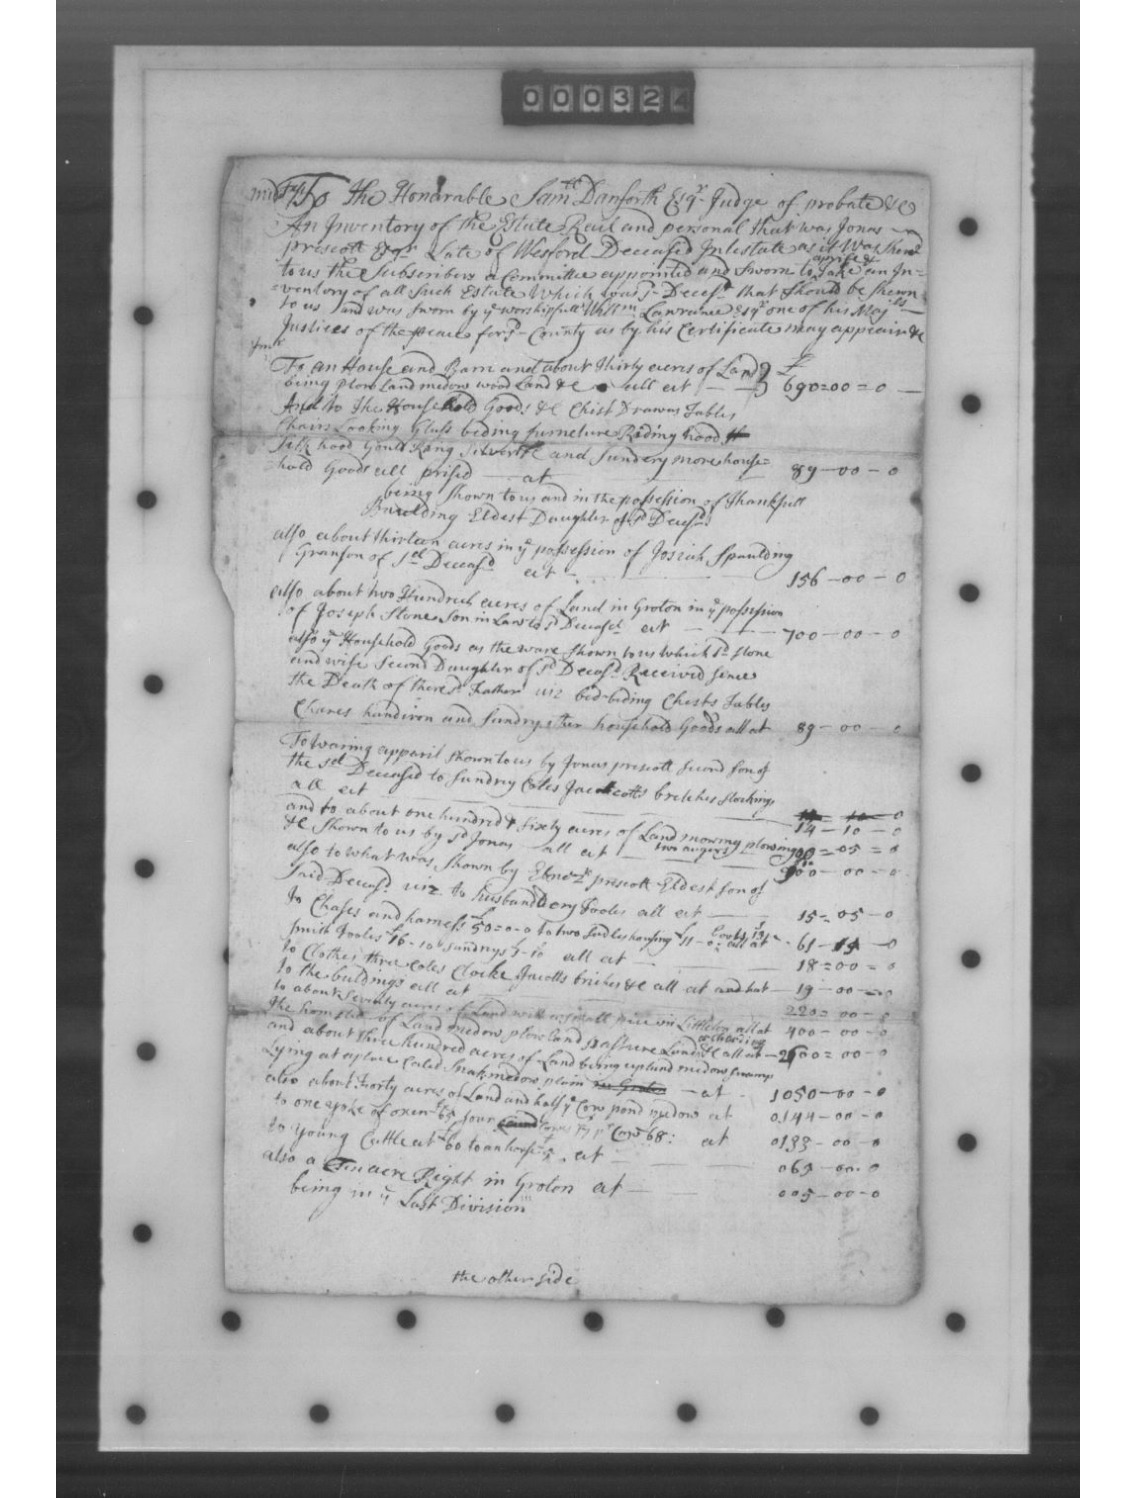 000324
To the Honarable Samll Danforth Esqr Judge of probate &c
An Inventory of the Estate Rail and personal that was Jonas
prescott Late of Wesford Deceased Intestate as it Was Shew
to us the Subscribers a Committee appointed and Sworn to apprise & Take an In=
ventory of all Such Estate Which was sd Decesd that Should be shewn
to us and was Sworn by ye worshipfull Willm Lawrance Esqr one of his Majtis
Justices of the peace for sd County as by his Certificate may appeair &c
To an House and Barn and about Thirty acres of Land £
being plow land medow wood Land &c all at 690=00=0
And to the House hold Goods &c Chist Drawers Tables
Chairs Looking Glass beding furneture Riding hood
Silk hood Gould Ring Silver and Sundery more house=
hold Goods all prised at 89-00-0
being Shown to us and in the possession of Thankfull
Eldest Daughter of sd Decesd
also about thirteen acres in ye possession of Josiah Spaulding
Granson of sd Deceasd at 156-00-0
also about two Hundred acres of Land in Groton in ye possession
of Joseph Stone Son in Law to sd Deceasd at 700-00-0
also ye Household Goods as the ware shown to us which sd Stone
and wife Second Daughter of sd Decesd Received sence
the Death of there sd Father viz bed-beding Chests Tables
Chares handiron and Sundry other household Goods all at 89-00-0
To waring apparil shown to us by Jonas prescott Second son of
the sd Deceased to Sundry Cotes Jaccotts britches stockings
all at 14-10-0
and to about one hundred & sixty acres of Land mowing plowing
&c Shown to us by sd Jonas all at two augers 00=05=0
900-00-0
also to what was Shown by Ebnezr prescott Eldest son of
said Decesd viz to husbandery Tooles all at 15-05-0
to Chases and harness £50=0-0 to two all at 61-15-0
smith Tooles £16-10 sundrys all at 18=00-0
to Clothes three Cotes Clocke Jacotts briches &c all at and hat 19-00-0
to the buildings all at 220=00-0
to about Seventy acres of Land all at 400-00-0
the of Land medow plow land pasture Land &c all at 2600=00-0
and about three hundred acres of Land being upland medow swamp
Lying at a place Caled Snakmedow plain at 1050-00-0
also about Forty acres of Land and half ye Cow pond medow at 0144-00-0
to one yoke of oxen £65 four Cows at 0133-00-0
to young Cattle at £60 to an horse £5 at 065-00-0
also a Ten acre Right in Groton at 005-00-0
being in ye Last Division
the other side